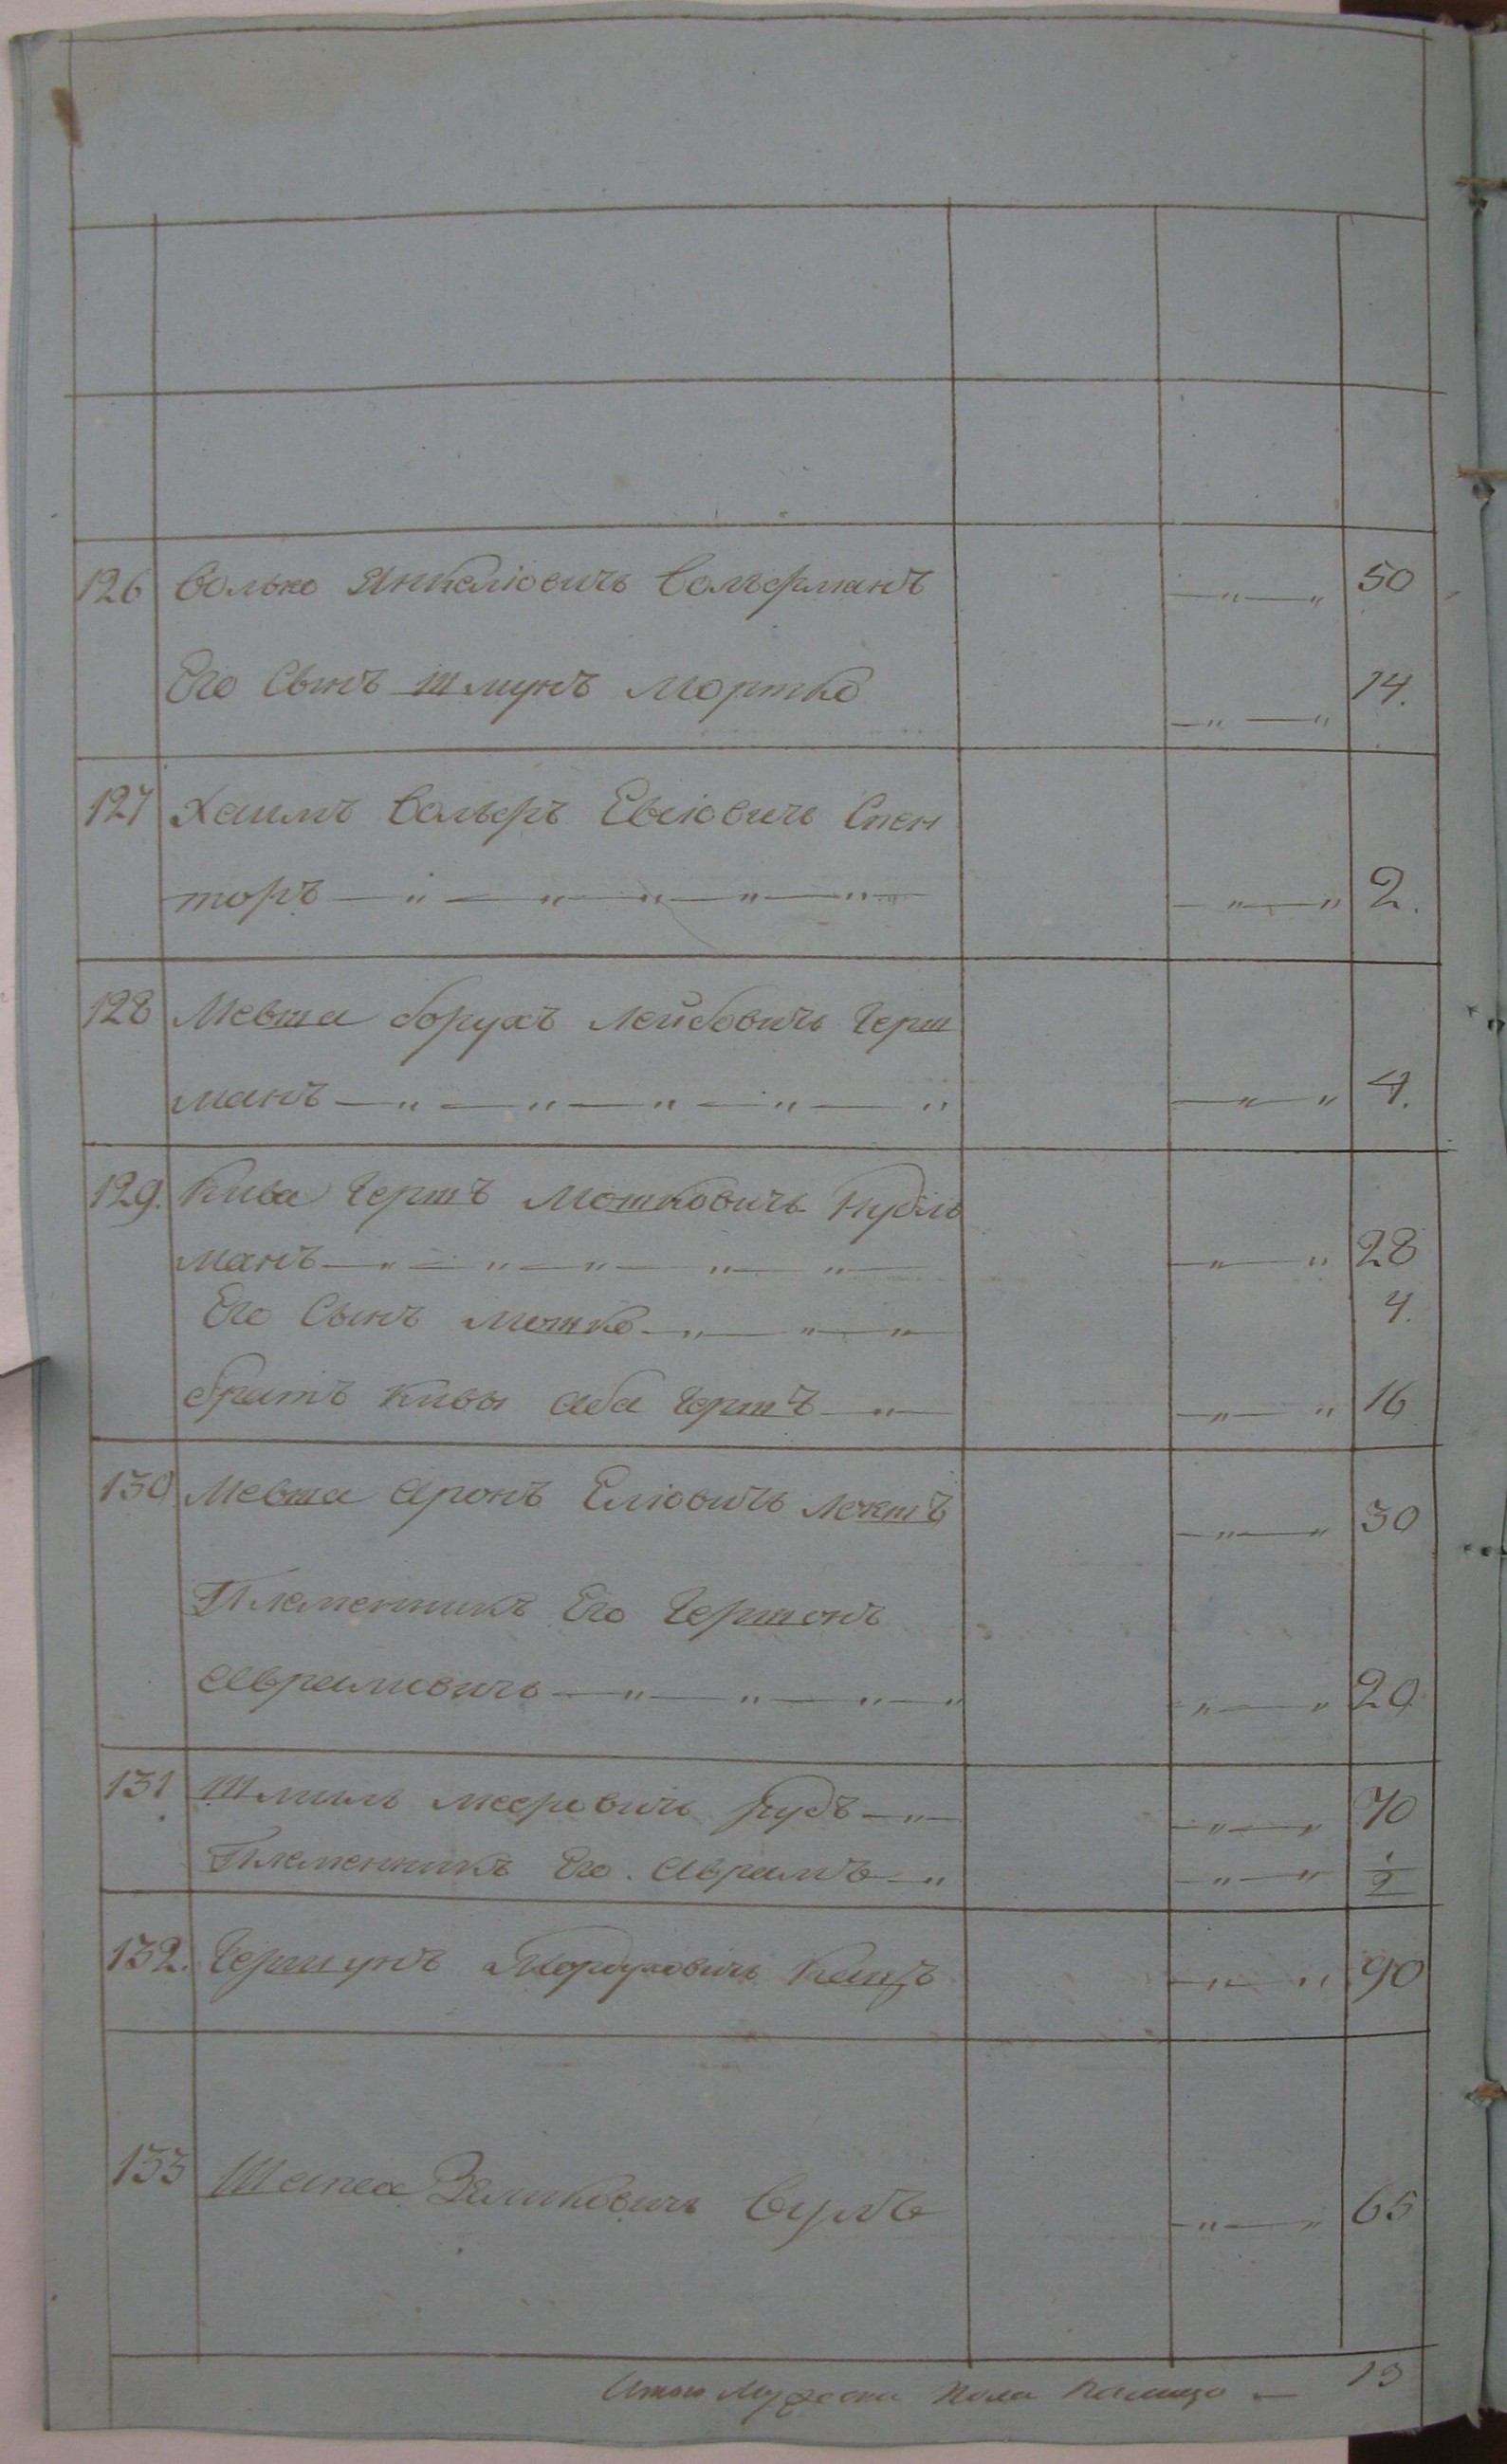 126 Волько Янкеліовичь Вольфманъ —„—„ 50
Его Сынъ Шлунъ Мортко —„—„ 14.
127 Хаимъ Вольфъ Евіовичь Спек
торъ —„—„—„—„—„— —„—„ 2.
128 Мевша борухъ Лейбовичь Герш
манъ —„—„—„—„—„ —„—„ 4.
129. Кива Гершъ Мошковичь Нудль
манъ —„—„—„—„—„— —„—„ 28
Его Сынъ Мошко —„—„—„ 4.
братъ Кивы аба Гершъ —„— —„—„ 16
130 Мевша Аронъ Еліовичь —„—„ 30
Племенникъ Его Гершонъ
Аврамовичь —„—„—„—„ —„—„ 20
131 Шмиль Мееровичь —„— —„—„ 70
Племенникъ Его. Аврамъ —„ —„—„ ½
132. Гершунъ Мордуховичь Кацъ —„—„ 90
133 Шапса Зеликовичь Вулъ —„—„ 65
Итого Мужеска Пола Налицо — 13